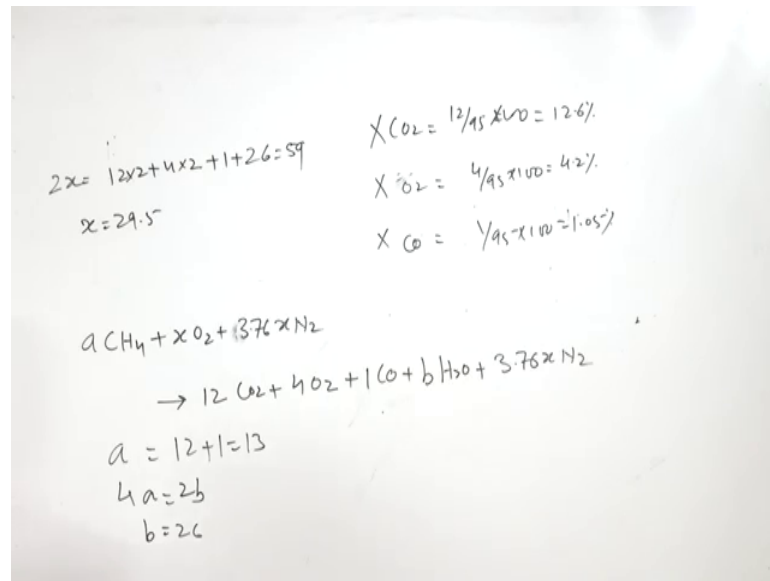 2x = 12x2+4x2+1+26=59
x=29.5
XCO2 = 12/95 x100 = 12.6%
X O2 = 4/95 x100 = 4.2%
X CO = 1/95 x100 = 1.05%
a CH4 + x O2 + 3.76 x N2
→ 12 CO2 + 4 O2 + 1 CO + b H2O + 3.76 x N2
a = 12+1=13
4a=2b
b=26